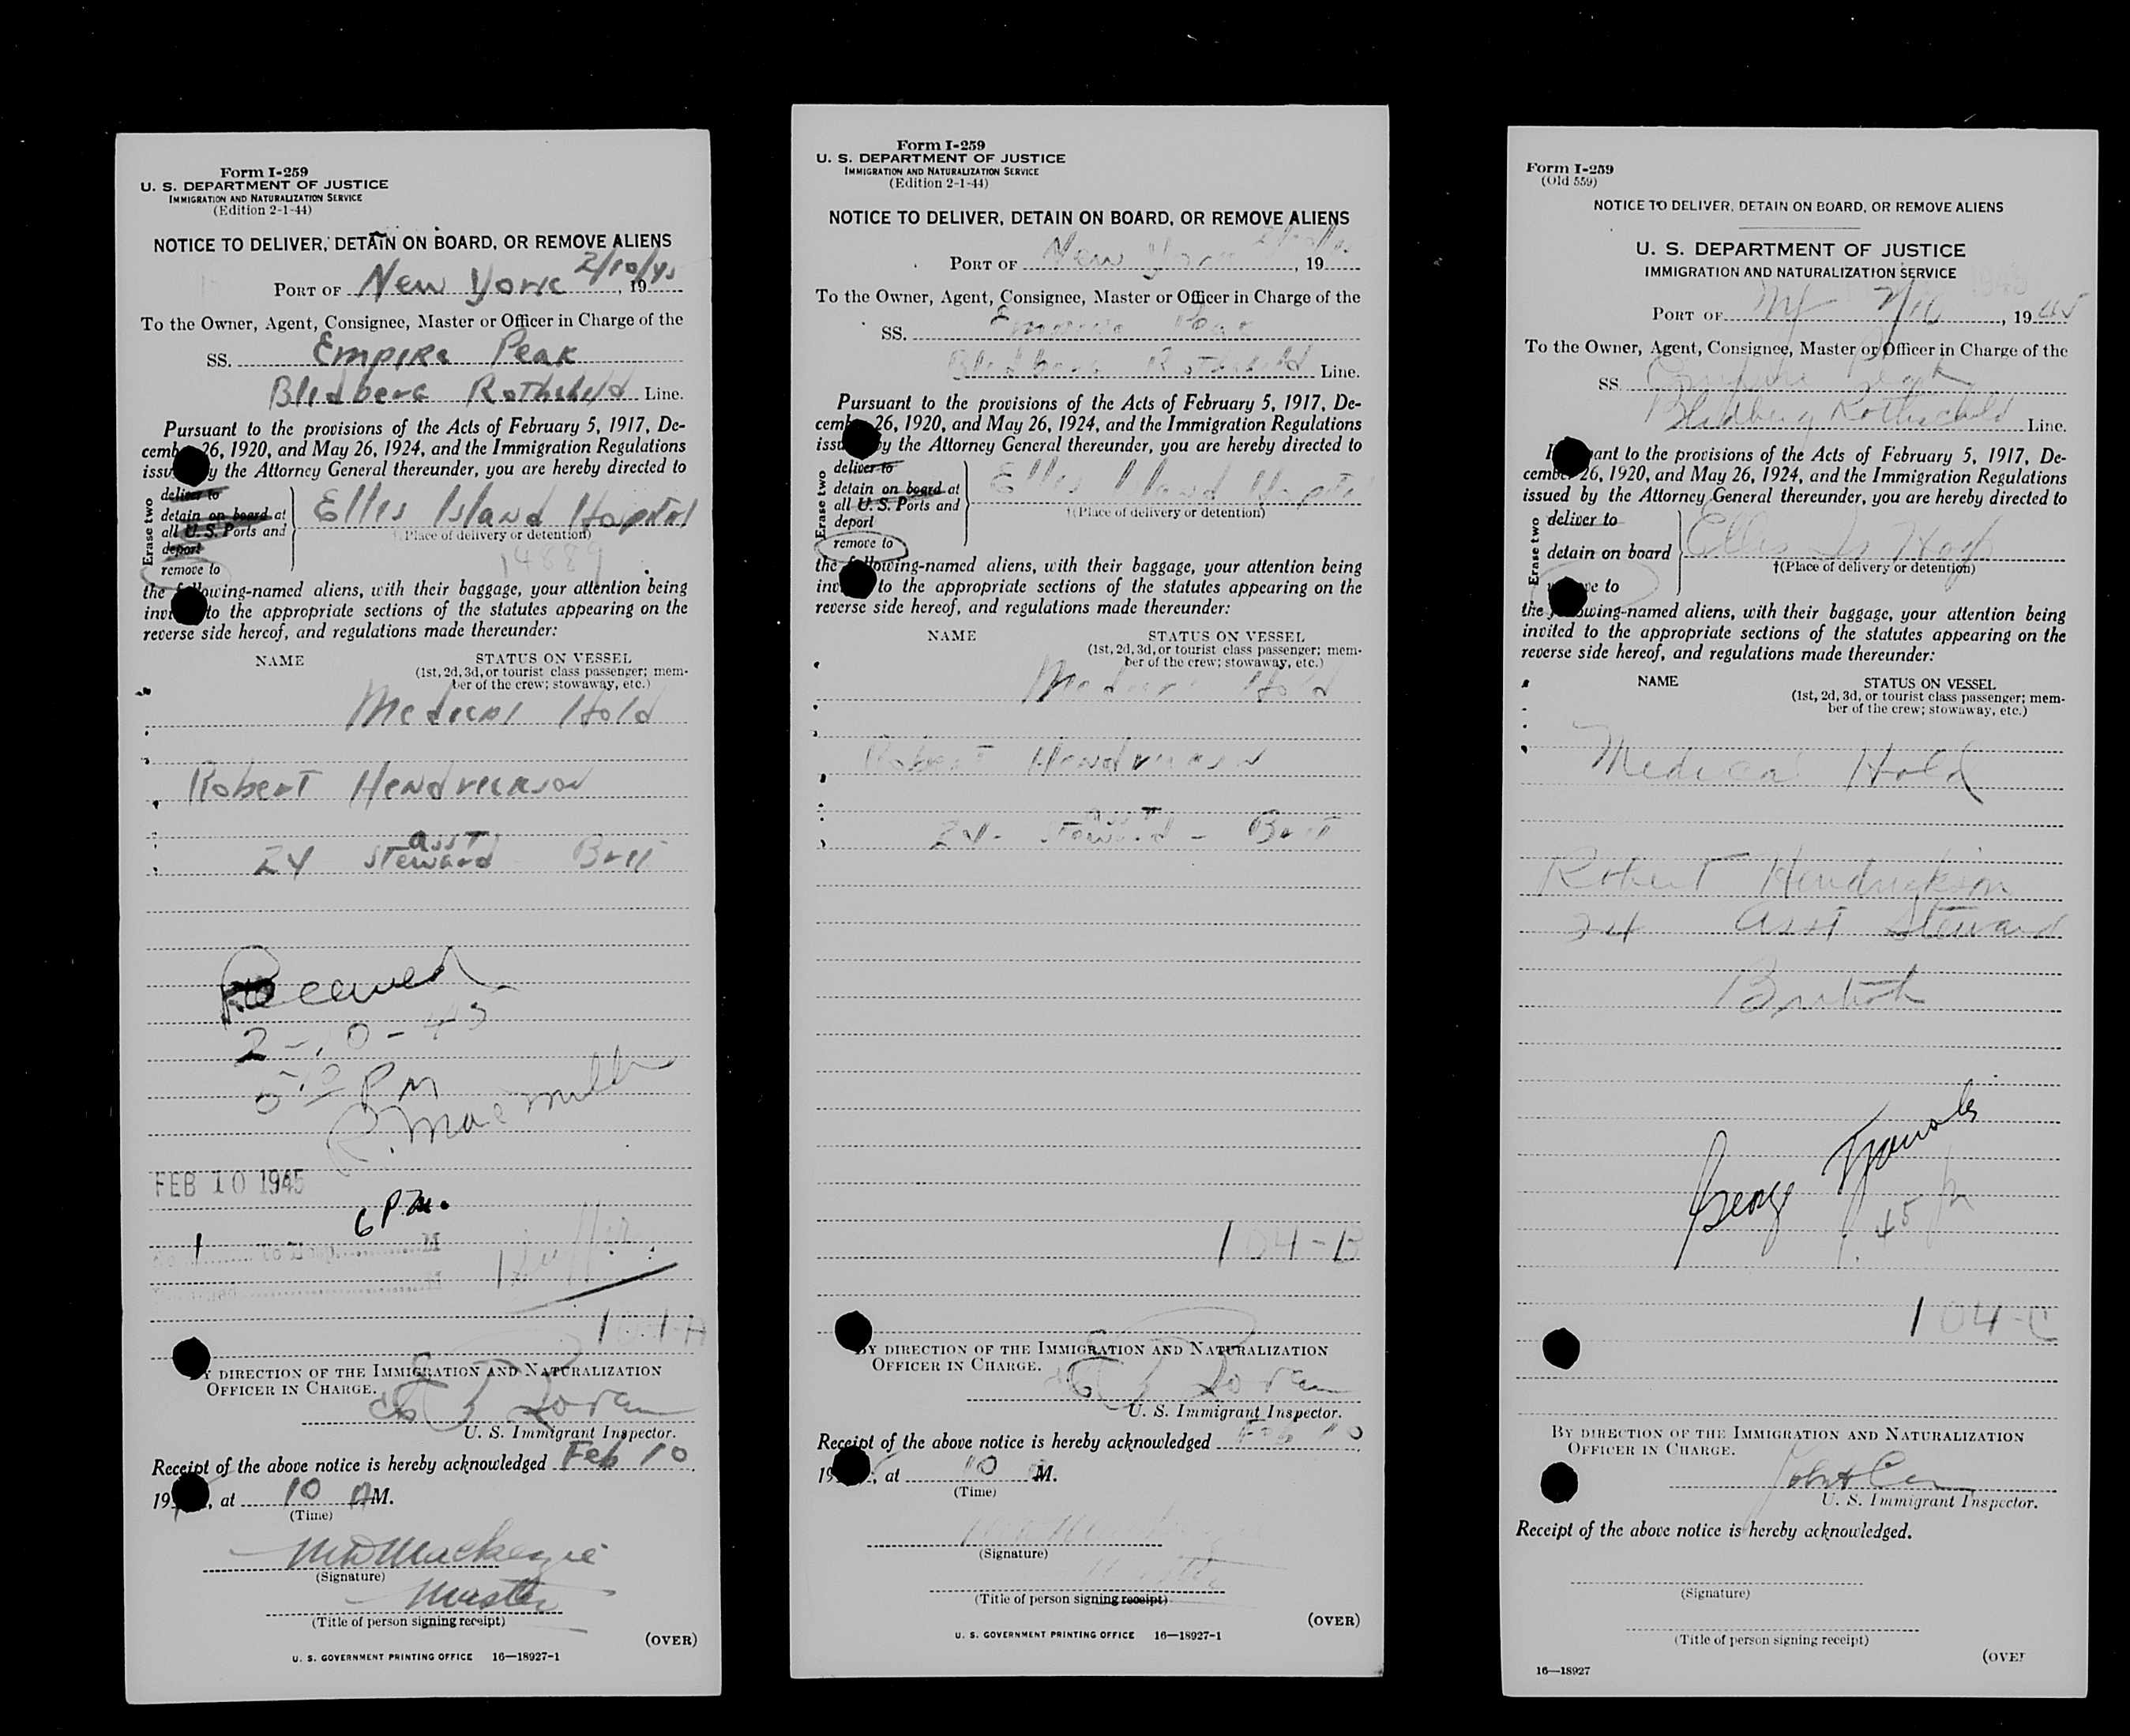 Form I-259
U. S. DEPARTMENT OF JUSTICE
IMMIGRATION AND NATURALIZATION SERVICE
(Edition 2-1-44)
NOTICE TO DELIVER, DETAIN ON BOARD, OR REMOVE ALIENS
PORT OF New York 2/10/45, 19
To the Owner, Agent, Consignee, Master or Officer in Charge of the
SS. Empire Peak
Bledberg Rothchild Line.
Pursuant to the provisions of the Acts of February 5, 1917, De-
cemb 26, 1920, and May 26, 1924, and the Immigration Regulations
issu y the Attorney General thereunder, you are hereby directed to
Erase two
deliver to
detain on board at
all U. S. Ports and
deport
remove to
Ellis Island Hospital
†(Place of delivery or detention)
14889
the following-named aliens, with their baggage, your attention being
invi to the appropriate sections of the statutes appearing on the
reverse side hereof, and regulations made thereunder:
NAME STATUS ON VESSEL
(1st, 2d, 3d, or tourist class passenger; mem-
ber of the crew; stowaway, etc.)
Medical Hold
Robert Hendrickson
asst
24 Steward Brit
Received
2-10-45
5 10 PM
FEB 10 1945
6 P.M.
1
BY DIRECTION OF THE IMMIGRATION AND NATURALIZATION
OFFICER IN CHARGE.
U. S. Immigrant Inspector.
Receipt of the above notice is hereby acknowledged Feb 10,
19 , at 10 AM.
(Time)
MacKenzie
(Signature)
Master
(Title of person signing receipt)
(OVER)
U. S. GOVERNMENT PRINTING OFFICE 16—18927-1
Form I-259
U. S. DEPARTMENT OF JUSTICE
IMMIGRATION AND NATURALIZATION SERVICE
(Edition 2-1-44)
NOTICE TO DELIVER, DETAIN ON BOARD, OR REMOVE ALIENS
PORT OF New York, 19
To the Owner, Agent, Consignee, Master or Officer in Charge of the
SS. Empire Peak
Bledberg Rothchild Line.
Pursuant to the provisions of the Acts of February 5, 1917, De-
cemb 26, 1920, and May 26, 1924, and the Immigration Regulations
issu by the Attorney General thereunder, you are hereby directed to
Erase two
deliver to
detain on board at
all U. S. Ports and
deport
remove to
Ellis Island Hospital
†(Place of delivery or detention)
the following-named aliens, with their baggage, your attention being
invi to the appropriate sections of the statutes appearing on the
reverse side hereof, and regulations made thereunder:
NAME STATUS ON VESSEL
(1st, 2d, 3d, or tourist class passenger; mem-
ber of the crew; stowaway, etc.)
Medical Hold
Robert Hendrickson
asst
24- Steward - Brit
104-B
BY DIRECTION OF THE IMMIGRATION AND NATURALIZATION
OFFICER IN CHARGE.
U. S. Immigrant Inspector.
Receipt of the above notice is hereby acknowledged Feb 10,
19 , at 10 M.
(Time)
(Signature)
Master
(Title of person signing receipt)
(OVER)
U. S. GOVERNMENT PRINTING OFFICE 16—18927-1
Form I-259
(Old 559)
NOTICE TO DELIVER, DETAIN ON BOARD, OR REMOVE ALIENS
U. S. DEPARTMENT OF JUSTICE
IMMIGRATION AND NATURALIZATION SERVICE
PORT OF NY 2/10, 1945
To the Owner, Agent, Consignee, Master or Officer in Charge of the
SS. Empire Peak
Bledberg Rothschild Line.
P ant to the provisions of the Acts of February 5, 1917, De-
cember 26, 1920, and May 26, 1924, and the Immigration Regulations
issued by the Attorney General thereunder, you are hereby directed to
Erase two
deliver to
detain on board
remove to
Ellis Is Hosp
†(Place of delivery or detention)
the following-named aliens, with their baggage, your attention being
invited to the appropriate sections of the statutes appearing on the
reverse side hereof, and regulations made thereunder:
NAME STATUS ON VESSEL
(1st, 2d, 3d, or tourist class passenger; mem-
ber of the crew; stowaway, etc.)
Medical Hold
Robert Hendrickson
24 Asst Steward
British
George
104-C
BY DIRECTION OF THE IMMIGRATION AND NATURALIZATION
OFFICER IN CHARGE.
U. S. Immigrant Inspector.
Receipt of the above notice is hereby acknowledged.
(Signature)
(Title of person signing receipt)
(OVER
16—18927